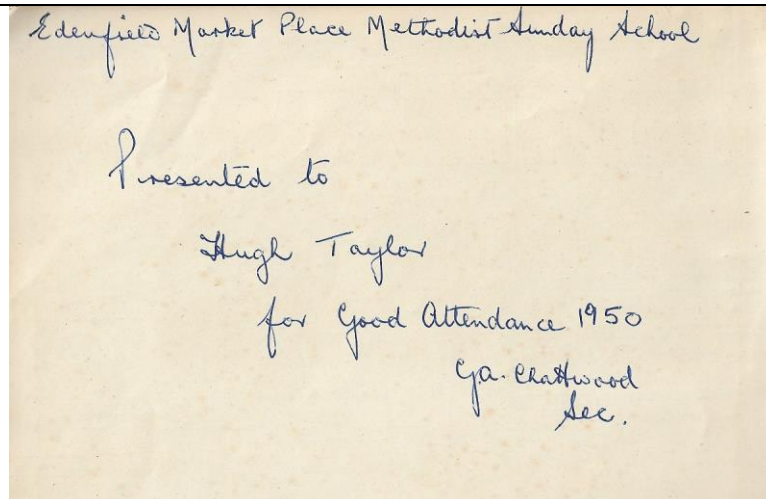 Edenfield Market Place Methodist Sunday School
Presented to
Hugh Taylor
for Good Attendance 1950
G.A. Chattwood
Sec.